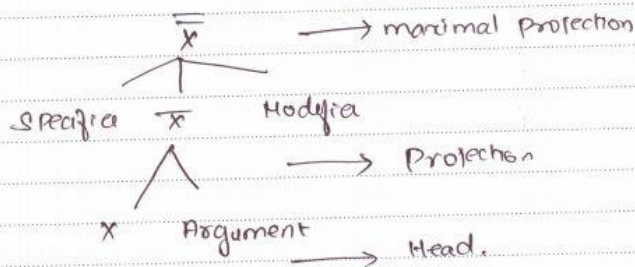 X̿ → maximal Projection
Specifier X̅ Modifier
→ Projection
X Argument
→ Head.